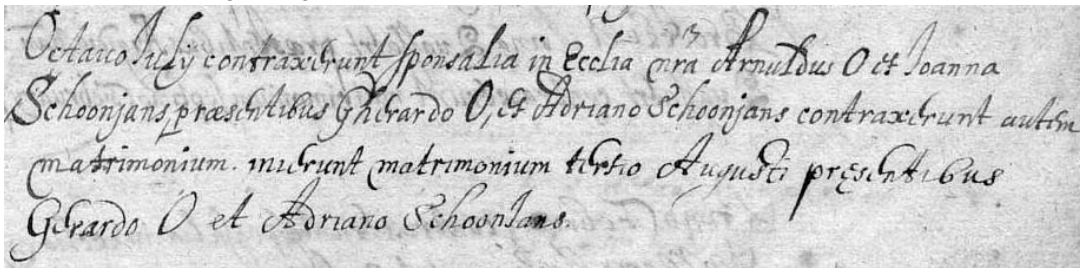 Octauo Iulij contraxerunt sponsalia in Ecclia nra Arnuldus O et Joanna
Schoonjans, præsentibus Gherardo O, et Adriano Schoonjans contraxerunt autem
matrimonium. inierunt matrimonium tertio Augusti pręsentibus
Gerardo O et Adriano Schoonians.